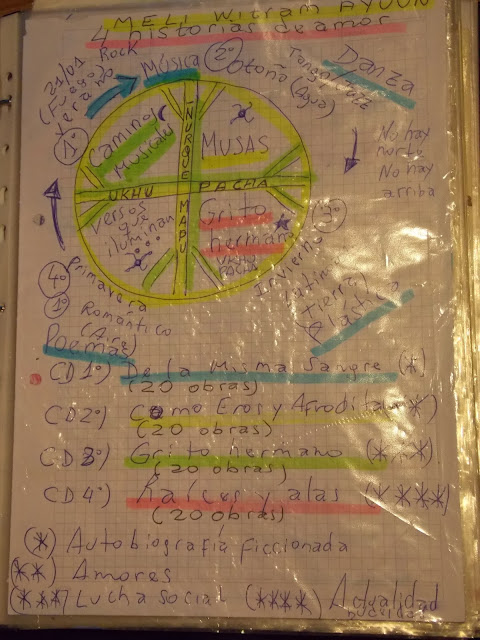 MELI Witram AYÜÜN
4 historias de amor
21/01
(Fuego)
Verano
Rock
Música
2º
Otoño (Agua)
Tango
Danza
1º
Camino
Musical
ÑUKE MAPU
MUSAS
No hay
norte
No hay
arriba
UKHU PACHA
Versos
que
iluminan
Grito
hermano
3º
Invierno
Latino
Tierra
Plástica
4º
Primavera
1º Romántico
(Aire)
Poemas
CD 1º) De la Misma Sangre (*)
(20 obras)
CD 2º) Como Eros y Afrodita (**)
(20 obras)
CD 3º) Grito hermano (***)
(20 obras)
CD 4º) Raíces y alas (****)
(20 obras)
(*) Autobiografía ficcionada
(**) Amores
(***) Lucha social (****) Actualidad